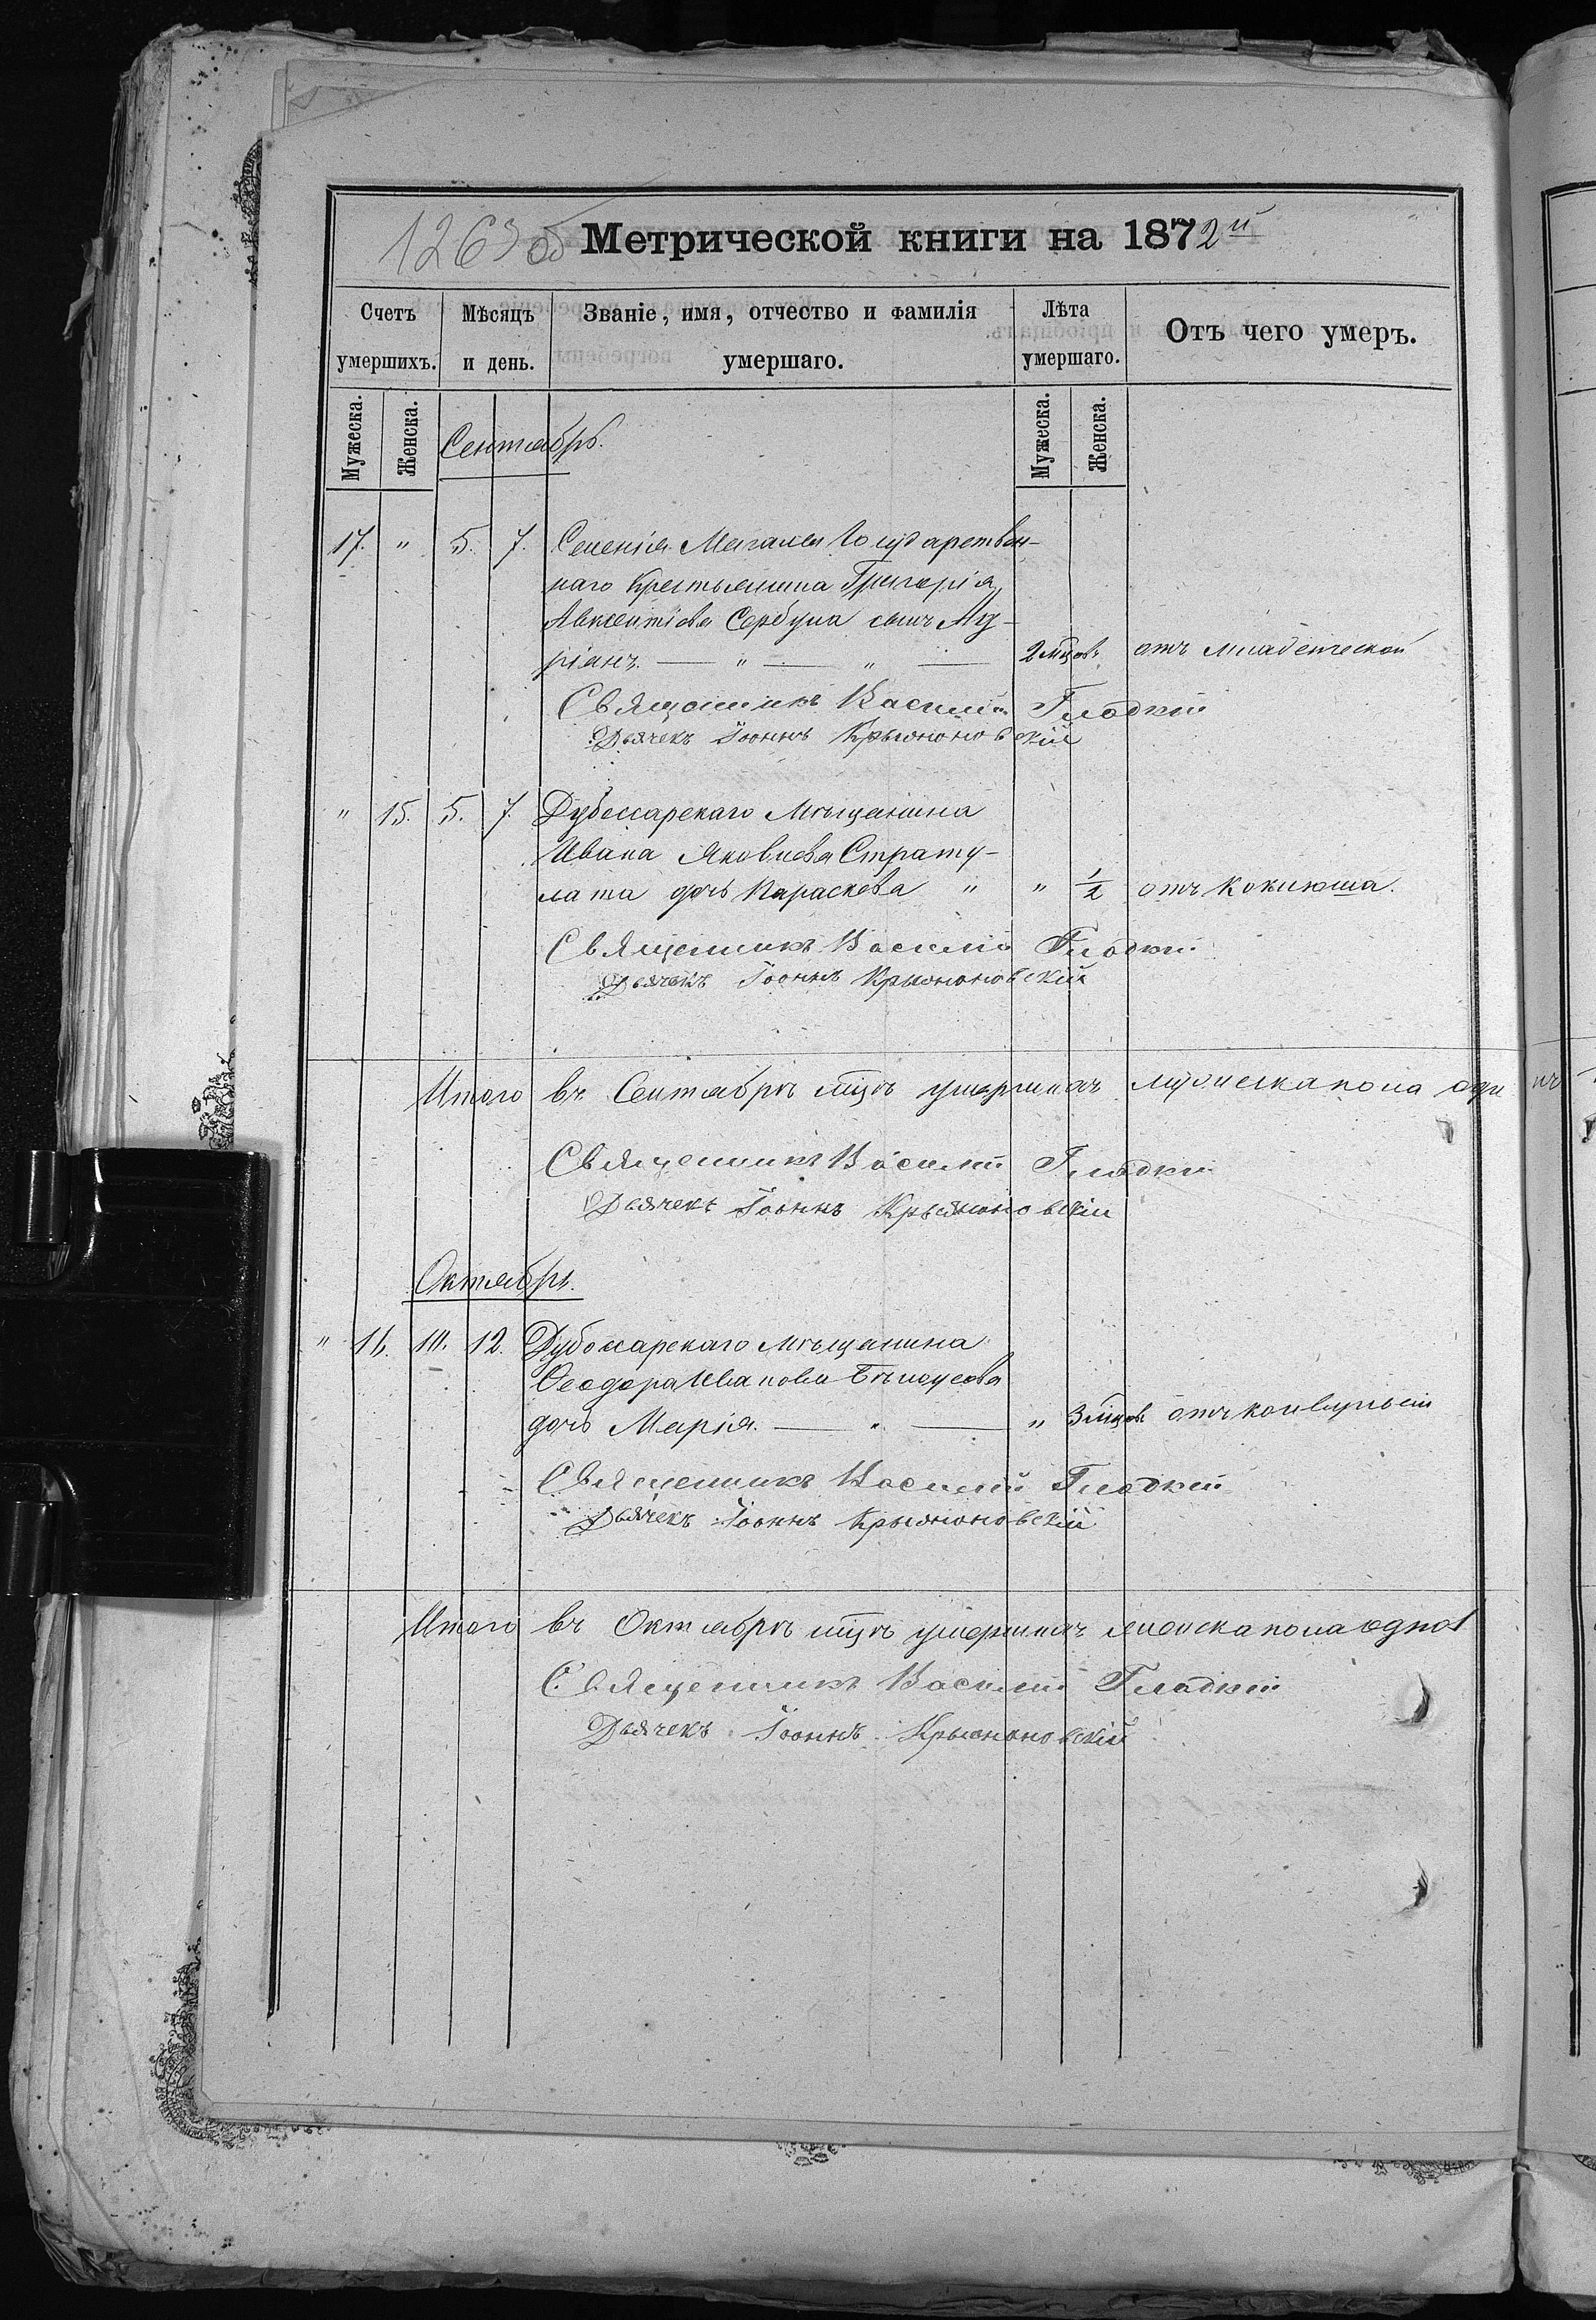 1263 об Метрической книги на 1872й
Счетъ умершихъ. Мѣсяцъ и день. Званіе, имя, отчество и фамилія умершаго. Лѣта умершаго. Отъ чего умеръ.
Мужеска. Женска. Мужеска. Женска.
Сентябрь.
17. " 5. 7. Селенія Магалея Государствен-
наго Крестьянина Григорія
Авксентіева Сербула сынъ
ріанъ. — " — " — 2 мцовъ отъ младенческой
Священникъ Василій Гладкій
Дьячекъ Іоаннъ Крыжановскій
" 15. 5. 7. Дубоссарскаго Мѣщанина
Ивана Яковлева Страту-
лата дочь Параскева " " 1/2 отъ коклюша.
Священникъ Василій Гладкій
Дьячекъ Іоаннъ Крыжановскій
Итого въ Сентябрѣ мцѣ умершихъ мужеска пола оди нъ
Священникъ Василій Гладкій
Дьячекъ Іоаннъ Крыжановскій
Октябрь.
" 16. 10. 12. Дубоссарскаго мѣщанина
Ѳеодора Иванова
дочь Марія. — " — " 3 мцовъ отъ конвульсій
Священникъ Василій Гладкій
Дьячекъ Іоаннъ Крыжановскій
Итого въ Октябрѣ мцѣ умершихъ женска пола одна 1
Священникъ Василій Гладкій
Дьячекъ Іоаннъ Крыжановскій